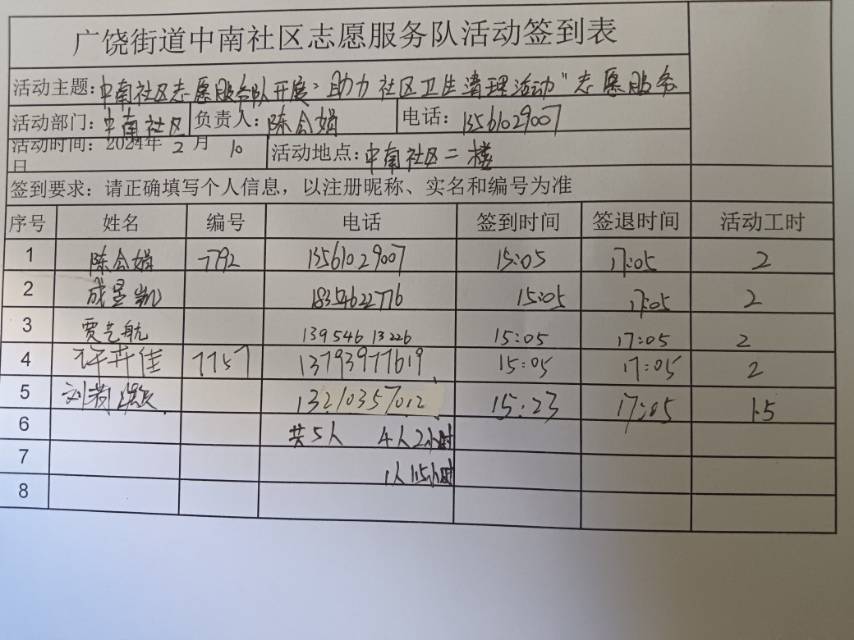 广饶街道中南社区志愿服务队活动签到表
活动主题:中南社区志愿服务队开展"助力社区卫生清理活动"志愿服务
活动部门:中南社区 负责人:陈会娟 电话:13561029007
活动时间:2024年 2 月 10 日 活动地点:中南社区二楼
签到要求:请正确填写个人信息,以注册昵称、实名和编号为准
序号 姓名 编号 电话 签到时间 签退时间 活动工时
1 陈会娟 7792 13561029007 15:05 17:05 2
2 成昱凯 18354622776 15:05 17:05 2
3 贾艺航 13954613226 15:05 17:05 2
4 许卉佳 7757 13793977619 15:05 17:05 2
5 刘 13210357012 15:23 17:05 1.5
6 共5人 4人2小时
7 1人1.5小时
8